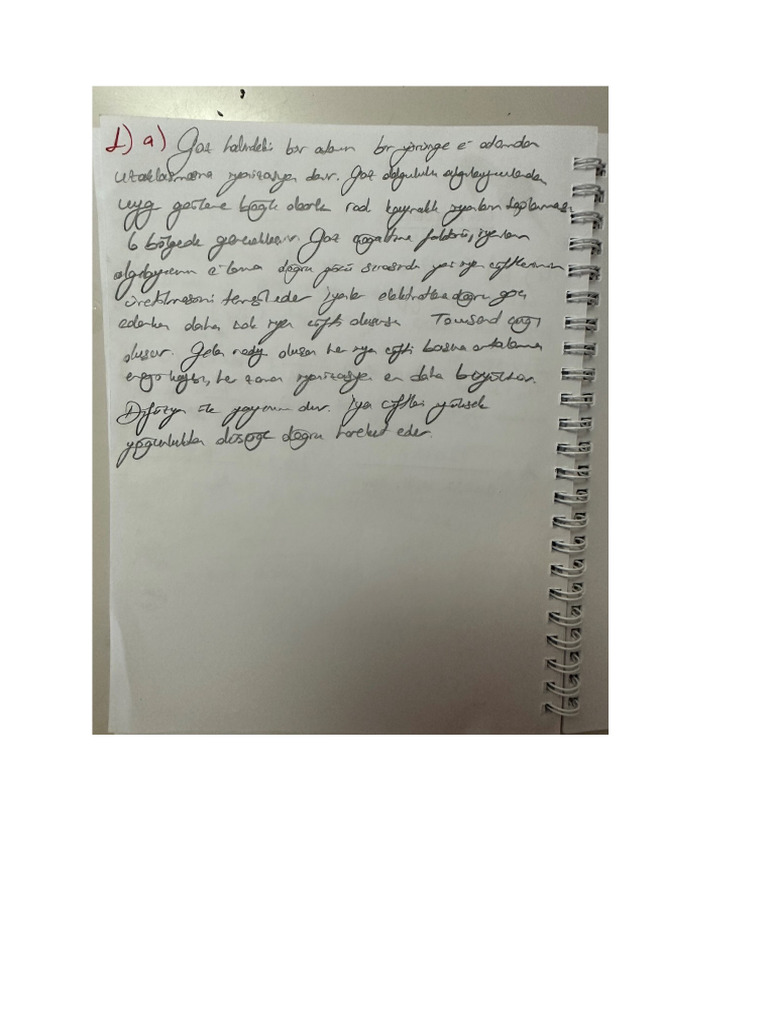 1) a) Gaz halindeki bir atom bir yörünge e⁻ atomdan
uzaklaşmasına iyonizasyon denir. Gaz dolgulu algılayıcılardan
uyg gerilime bağlı olarak rad kaynaklı iyonların toplanması
6 bölgede gerçekleşir. Gaz çoğaltma faktörü, iyonların
algılayıcının e⁻ doğru göçü sırasında yeni iyon çiftlerinin
üretilmesini temsil eder. İyonlar elektrotlara doğru göç
ederken daha çok iyon çifti oluşursa Townsend çığı
oluşur. Gelen rady oluşan her iyon çifti başına ortalama
enerji kaybı, her zaman iyonizasyon en daha büyüktür.
Difüzyon ile yayınım olur. İyon çiftleri yüksek
yoğunluktan düşüğe doğru hareket eder.